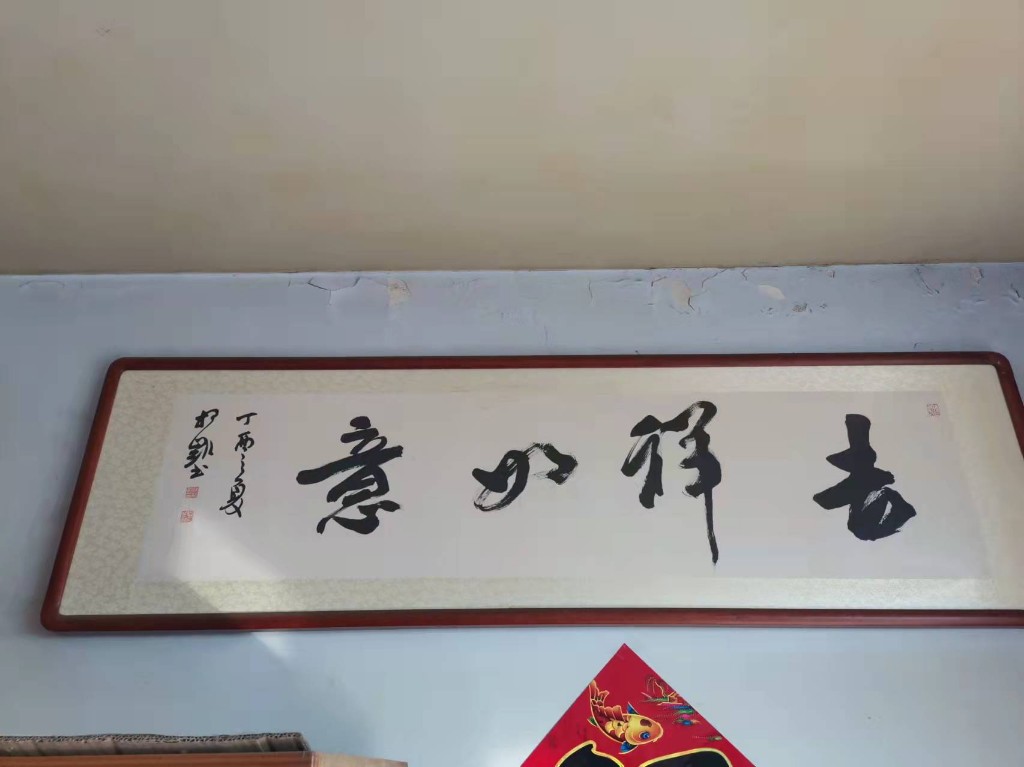 吉祥如意
丁酉之夏